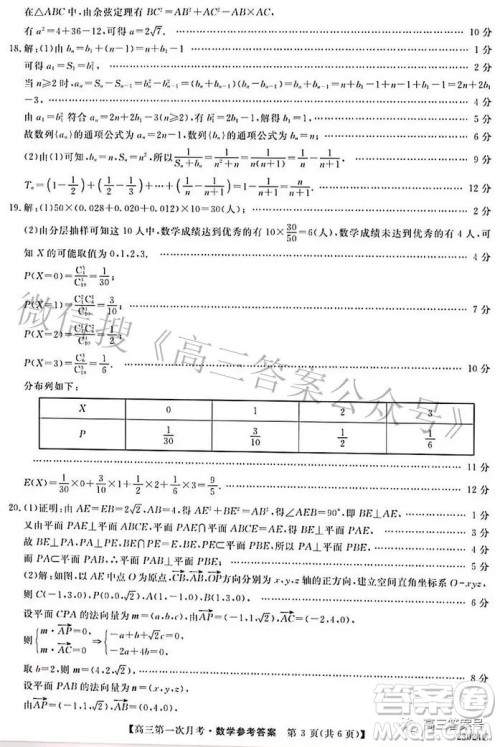 在△ABC中,由余弦定理有BC²=AC²+AB²-2AB×AC×
有a²=4+36-12,可得a=2√7. 10分
18.解:(1)由bₙ=b₁+(n-1)=n+b₁-1 1分
可得a₁=S₁=b₁². 2分
当n≥2时,aₙ=Sₙ-Sₙ₋₁=bₙ²-bₙ₋₁²=(bₙ+bₙ₋₁)(bₙ-bₙ₋₁)=bₙ+bₙ₋₁=2n+2b₁
-3. 4分
由a₁=b₁²符合aₙ=2n+2b₁-3,有b₁²=2b₁-1,解得b₁=1. 5分
故数列{aₙ}的通项公式为aₙ=2n-1,数列{bₙ}的通项公式为bₙ=n. 6分
(2)由(1)可知,bₙ=n,Sₙ=n²,所以1/(Sₙ+bₙ)=1/(n²+n)=1/(n(n+1))=1/n-1/(n+1). 9分
Tₙ=(1-1/2)+(1/2-1/3)+…+(1/n-1/(n+1))=1-1/(n+1)=n/(n+1). 12分
19.解:(1)50×(0.028+0.020+0.012)×10=30(人); 2分
(2)由分层抽样可知这10人中,数学成绩达到优秀的有10×30/50=6(人),数学成绩未达到优秀的有4人,
X的可能取值为0,1,2,3. 4分
P(X=0)=
=1/30;
P(X=1)=
=3/10; 7分
P(X=2)=
=1/2;
P(X=3)=
=1/6. 9分
分布列如下:
X 0 1 2 3
P 1/30 3/10 1/2 1/6
11分
E(X)=1/30×0+3/10×1+1/2×2+1/6×3=9/5. 12分
20.(1)证明:由AE=EB=2√2,AB=4,得AE²+BE²=AB²,得∠AEB=90°,即BE⊥AE. 1分
又由平面PAE⊥平面ABCE,平面PAE∩平面ABCE=AE,BE⊂平面ABCE,
故BE⊥平面PAE,BE⊂平面PBE,得平面PAE⊥平面PBE.
而平面PAC≠平面PAE,∴平面PAC不可能垂直平面PBE. 5分
(2)解:如图,以AE中点O为原点,CB,AB,OP方向分别为x,y,z轴的正方向,建立空间直角坐标系O-xyz,
则C(1,3,0),P(0,0,√2),A(1,-1,0),B(1,3,0).
设平面CPA的法向量为m=(a,b,c),由AP=(-1,1,√2),AC=(-2,4,0).
则{m·AP=0,m·AC=0,得{-a+b+√2c=0,-2a+4b=0.
取b=2,则m=(4,2,√2). 8分
设平面PAB的法向量为n=(x,y,z),由AP=(-1,1,√2),AB=(0,4,0).
【高三第一次月考·数学参考答案 第3页(共6页)】
微信搜《高三答案公众号》
高三答案号